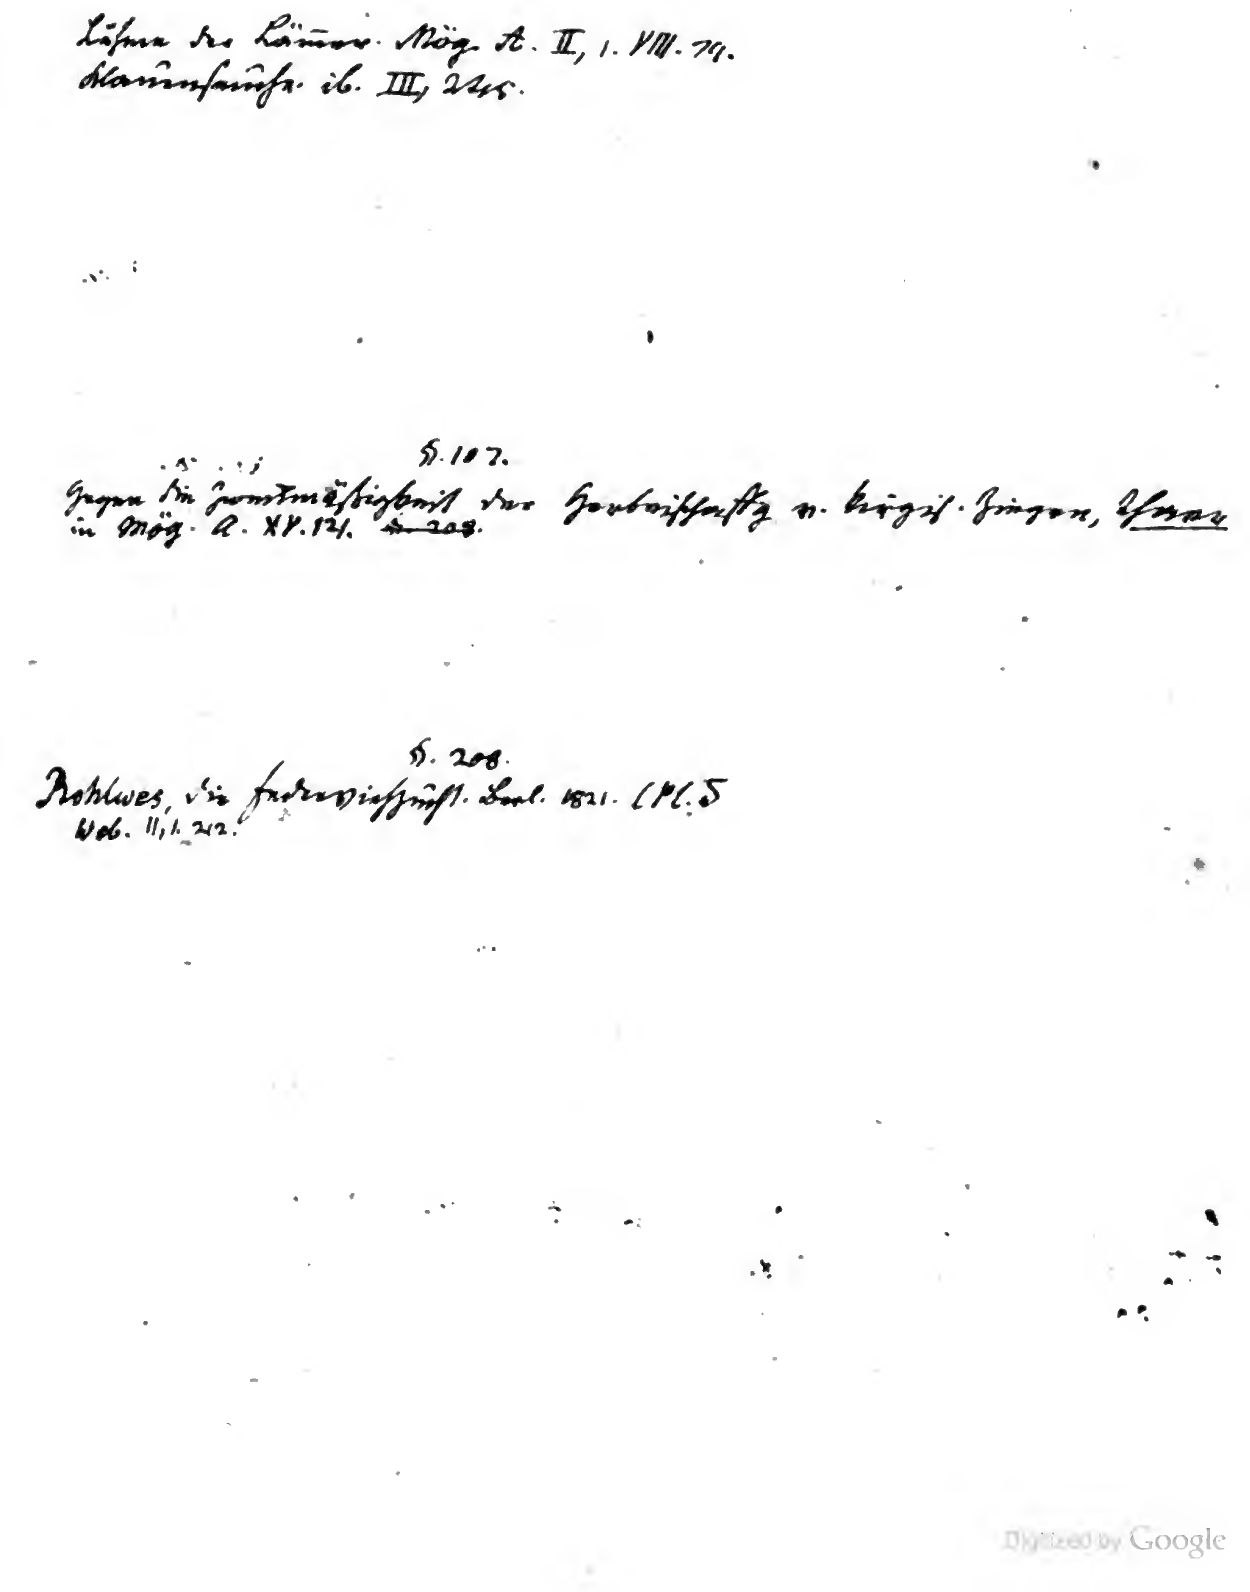 Lähme der Lämmer. Mög. A. II, 1. VIII. 79.
Klauenseuche. ib. III, 245.
§. 107.
Gegen die Zweckmäßigkeit der Herbeischaffg v. kirgis. Ziegen, Thaer
in Mög. A. XV. 121. §. 208.
§. 208.
Rohlwes, die Federviehzucht. Berl. 1821.
Web. II, 1. 212.
Digitized by Google